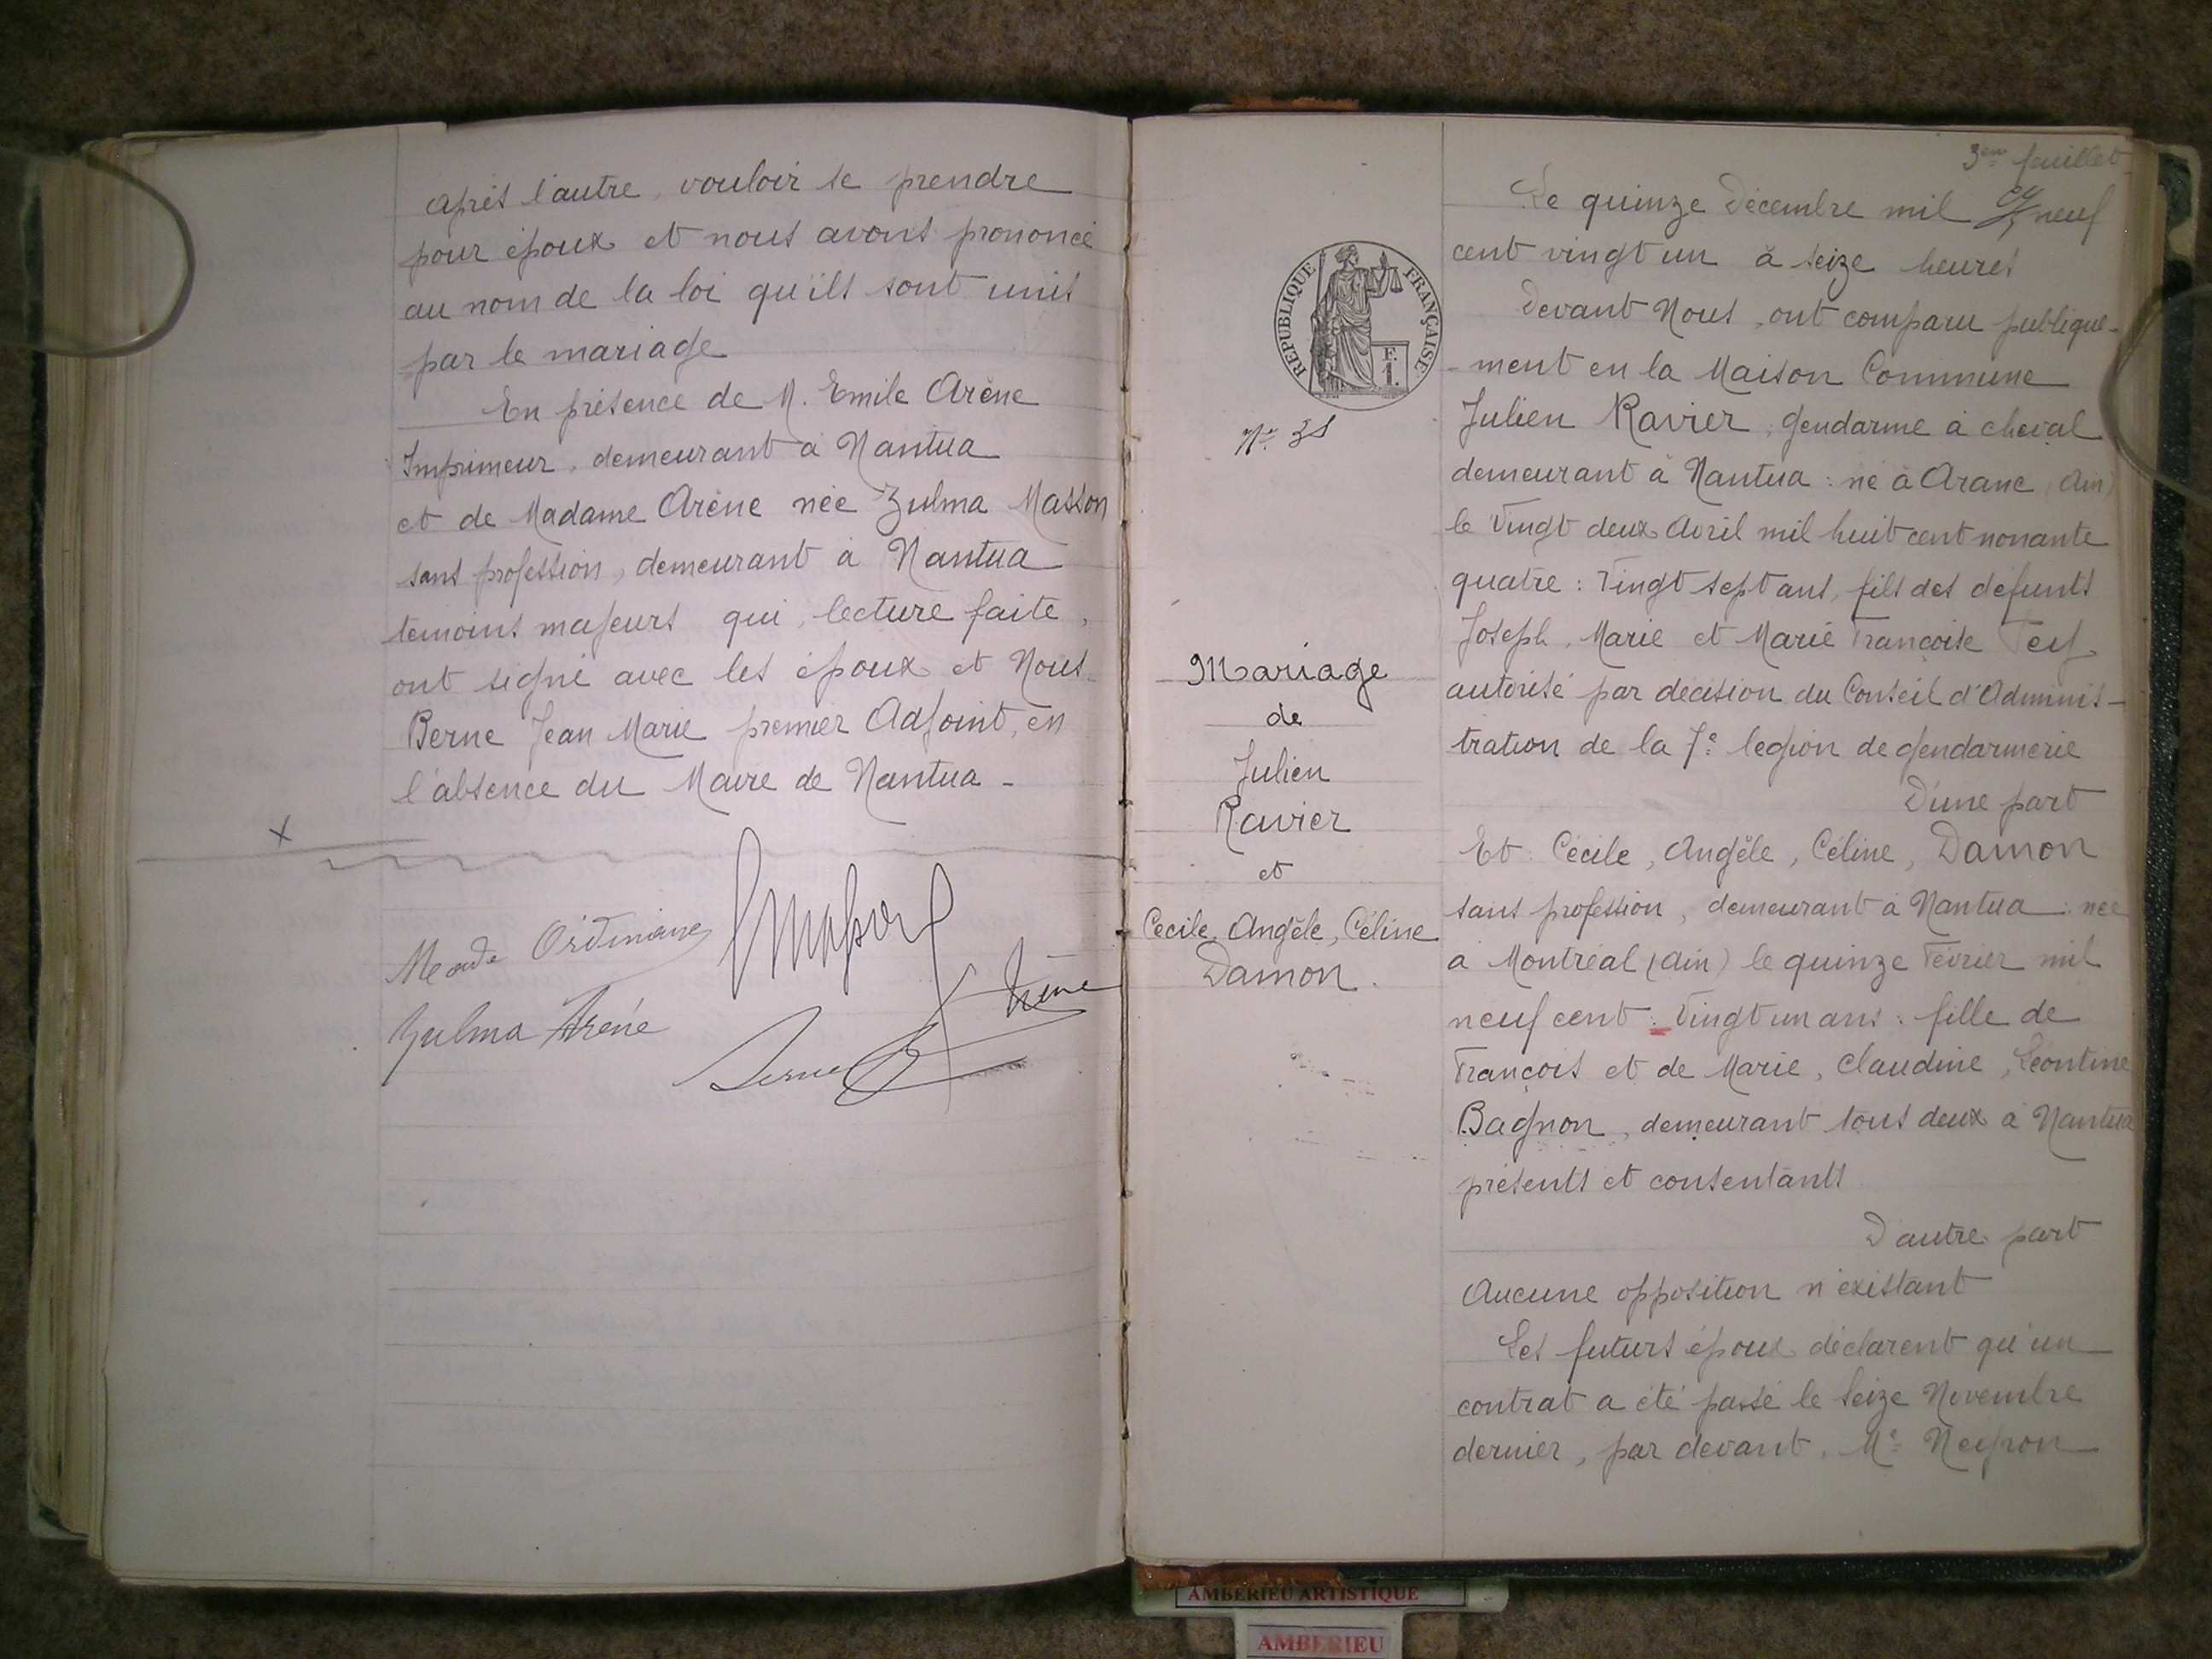 après l'autre, vouloir se prendre
pour époux et nous avons prononcé
au nom de la loi qu'ils sont unis
par le mariage
En présence de M. Emile Arène
Imprimeur, demeurant à Nantua
et de Madame Arène née Zulma Masson
sans profession, demeurant à Nantua
témoins majeurs qui, lecture faite,
ont signé avec les époux et Nous
Berne Jean Marie premier Adjoint, en
l'absence du Maire de Nantua -
x
Zulma Arène
Arène
Berne
REPUBLIQUE FRANÇAISE
F.
I.
Mariage
de
Julien
Ravier
et
Cécile, Angèle, Céline
Damon.
feuillet
Le quinze Décembre mil neuf
cent vingt un à seize heures
Devant Nous, ont comparu publique-
-ment en la Maison Commune
Julien Ravier, gendarme à cheval
demeurant à Nantua : né à Aranc (Ain)
le Vingt deux Avril mil huit cent nonante
quatre : Vingt sept ans, fils des défunts
Joseph, Marie et Marie Françoise
autorisé par décision du Conseil d'Adminis-
tration de la 7e légion de gendarmerie
D'une part
Et Cécile, Angèle, Céline, Damon
sans profession, demeurant à Nantua : née
à Montréal (Ain) le quinze Février mil
neuf cent : Vingt un ans : fille de
François et de Marie, Claudine, Léontine
Bagnon, demeurant tous deux à Nantua
présents et consentants
D'autre part
Aucune opposition n'existant
Les futurs époux déclarent qu'un
contrat a été passé le seize Novembre
dernier, par devant, Me Neyron
AMBERIEU ARTISTIQUE
AMBERIEU